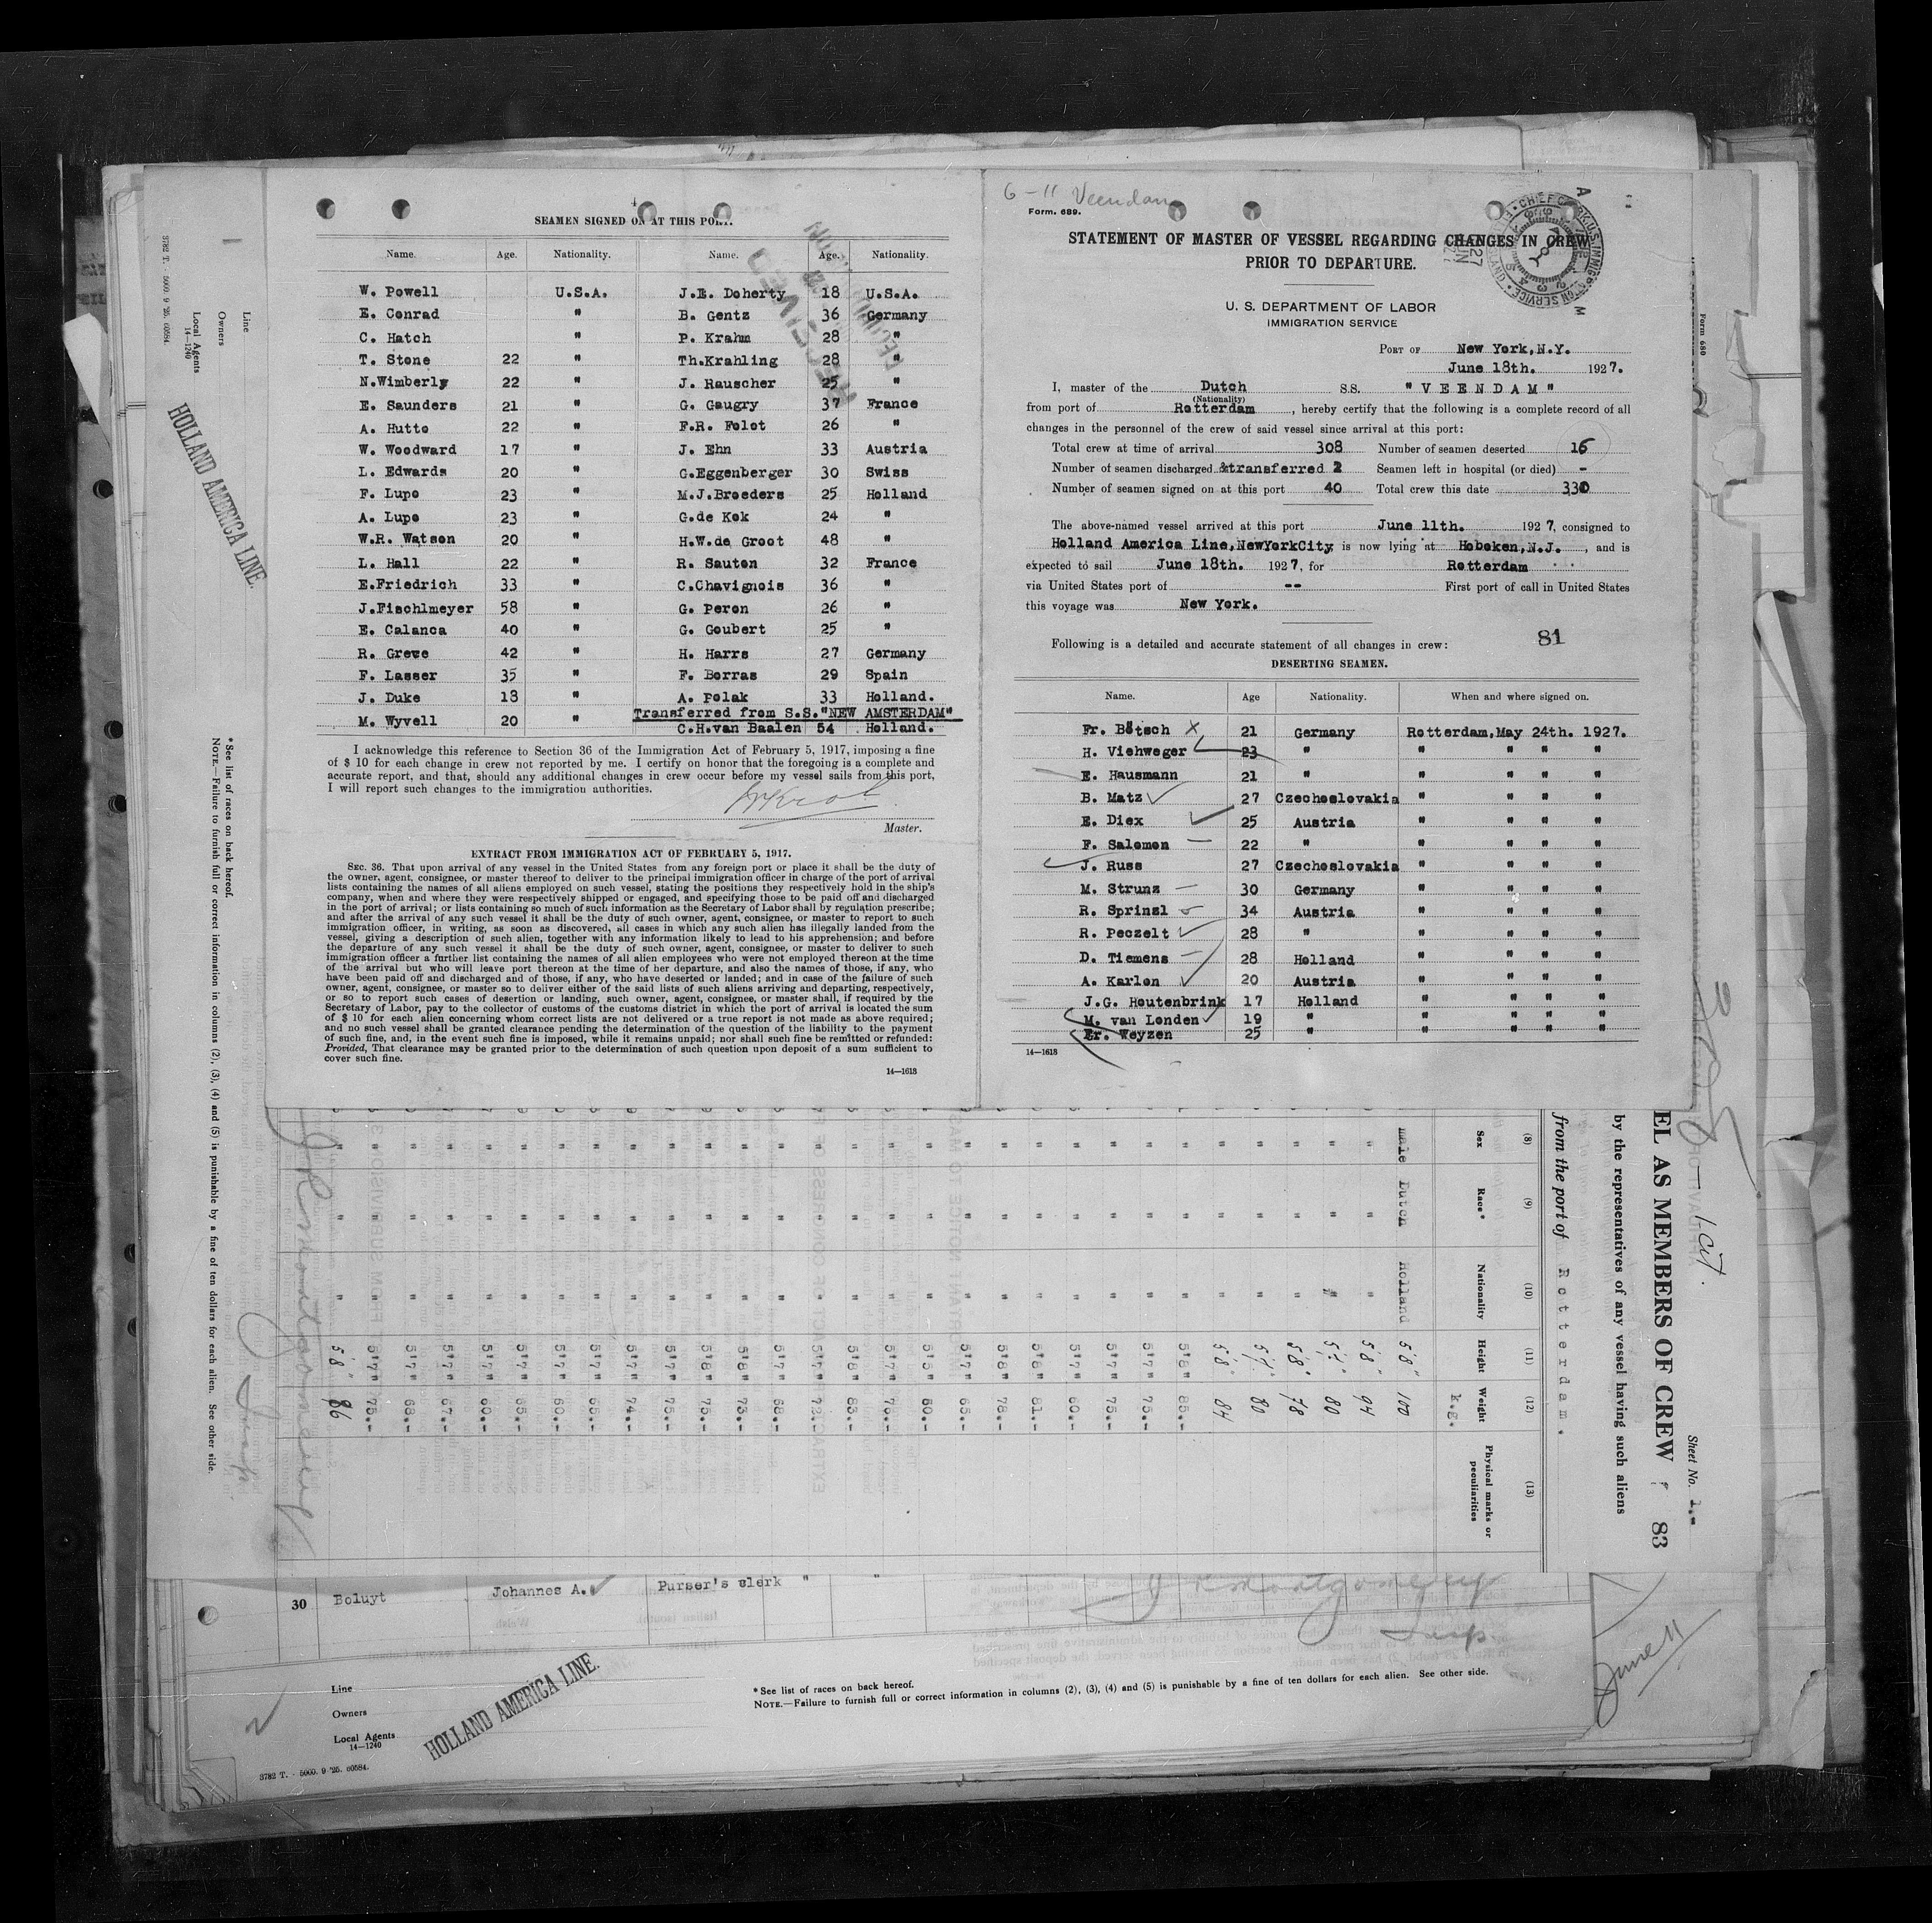 4
SEAMEN SIGNED ON AT THIS PORT.
Name. Age. Nationality. Name. Age. Nationality.
W. Powell U.S.A. J.E. Doherty 18 U.S.A.
E. Conrad " B. Gentz 36 Germany
C. Hatch " P. Krahm 28 "
T. Stone 22 " Th.Krahling 28 "
N.Wimberly 22 " J. Rauscher 25 "
E. Saunders 21 " G. Gaugry 37 France
A. Hutto 22 " F.R. Folot 26 "
W. Woodward 17 " J. Ehn 33 Austria
L. Edwards 20 " G.Eggenberger 30 Swiss
F. Lupo 23 " M.J.Broeders 25 Holland
A. Lupo 23 " G.de Kok 24 "
W.R. Watson 20 " H.W.de Groot 48 "
L. Hall 22 " R. Sauton 32 France
E.Friedrich 33 " C.Chavignois 36 "
J.Fischlmeyer 58 " G. Peron 26 "
E. Calanca 40 " G. Goubert 25 "
R. Grewe 42 " H. Harrs 27 Germany
F. Lasser 35 " F. Borras 29 Spain
J. Duke 18 " A. Polak 33 Holland.
M. Wyvell 20 " Transferred from S.S."NEW AMSTERDAM"
C.H.van Baalen 54 Holland.
I acknowledge this reference to Section 36 of the Immigration Act of February 5, 1917, imposing a fine
of $ 10 for each change in crew not reported by me. I certify on honor that the foregoing is a complete and
accurate report, and that, should any additional changes in crew occur before my vessel sails from this port,
I will report such changes to the immigration authorities.
Master.
EXTRACT FROM IMMIGRATION ACT OF FEBRUARY 5, 1917.
SEC. 36. That upon arrival of any vessel in the United States from any foreign port or place it shall be the duty of
the owner, agent, consignee, or master thereof to deliver to the principal immigration officer in charge of the port of arrival
lists containing the names of all aliens employed on such vessel, stating the positions they respectively hold in the ship's
company, when and where they were respectively shipped or engaged, and specifying those to be paid off and discharged
in the port of arrival; or lists containing so much of such information as the Secretary of Labor shall by regulation prescribe;
and after the arrival of any such vessel it shall be the duty of such owner, agent, consignee, or master to report to such
immigration officer, in writing, as soon as discovered, all cases in which any such alien has illegally landed from the
vessel, giving a description of such alien, together with any information likely to lead to his apprehension; and before
the departure of any such vessel it shall be the duty of such owner, agent, consignee, or master to deliver to such
immigration officer a further list containing the names of all alien employees who were not employed thereon at the time
of the arrival but who will leave port thereon at the time of her departure, and also the names of those, if any, who
have been paid off and discharged and of those, if any, who have deserted or landed; and in case of the failure of such
owner, agent, consignee, or master so to deliver either of the said lists of such aliens arriving and departing, respectively,
or so to report such cases of desertion or landing, such owner, agent, consignee, or master shall, if required by the
Secretary of Labor, pay to the collector of customs of the customs district in which the port of arrival is located the sum
of $ 10 for each alien concerning whom correct lists are not delivered or a true report is not made as above required;
and no such vessel shall be granted clearance pending the determination of the question of the liability to the payment
of such fine, and, in the event such fine is imposed, while it remains unpaid; nor shall such fine be remitted or refunded:
Provided, That clearance may be granted prior to the determination of such question upon deposit of a sum sufficient to
cover such fine.
14—1618
6-11 Veendam
Form. 689.
STATEMENT OF MASTER OF VESSEL REGARDING CHANGES IN CREW
PRIOR TO DEPARTURE.
U. S. DEPARTMENT OF LABOR
IMMIGRATION SERVICE
PORT OF New York,N.Y.
June 18th. 1927.
I, master of the Dutch S.S. "VEENDAM"
(Nationality)
from port of Rotterdam, hereby certify that the following is a complete record of all
changes in the personnel of the crew of said vessel since arrival at this port:
Total crew at time of arrival 308 Number of seamen deserted 16
Number of seamen discharged &transferred 2 Seamen left in hospital (or died) -
Number of seamen signed on at this port 40 Total crew this date 330
The above-named vessel arrived at this port June 11th. 1927, consigned to
Holland America Line,NewYorkCity is now lying at Hoboken,N.J., and is
expected to sail June 18th. 1927, for Rotterdam
via United States port of -- First port of call in United States
this voyage was New York.
Following is a detailed and accurate statement of all changes in crew: 81
DESERTING SEAMEN.
Name. Age Nationality. When and where signed on.
Fr. Bötsch 21 Germany Rotterdam,May 24th. 1927.
H. Viehweger 23 " " " " "
E. Hausmann 21 " " " " "
B. Matz 27 Czechoslovakia " " " "
E. Diex 25 Austria " " " "
F. Salomon 22 " " " " "
J. Russ 27 Czechoslovakia " " " "
M. Strunz 30 Germany " " " "
R. Sprinzl 34 Austria " " " "
R. Peczelt 28 " " " " "
D. Tiemens 28 Holland " " " "
A. Karlon 20 Austria " " " "
J.G. Houtenbrink 17 Holland " " " "
M. van Londen 19 " " " " "
Er. Weyzen 25 " " " " "
14—1618
Form 680
Line
Owners
Local Agents
14—1240
HOLLAND AMERICA LINE.
3782 T. - 5000. 9 '25. 60584.
* See list of races on back hereof.
NOTE.—Failure to furnish full or correct information in columns (2), (3), (4) and (5) is punishable by a fine of ten dollars for each alien. See other side.
Sheet No. 1.-
EL AS MEMBERS OF CREW 83
by the representatives of any vessel having such aliens
from the port of Rotterdam.
(8) (9) (10) (11) (12) (13)
Sex Race* Nationality Height Weight Physical marks or peculiarities
k.g.
male Dutch Holland 5'8" 100
" " " 5'8" 94
" " " 5'7" 80
" " " 5'8" 78
" " " 5'7" 80
" " " 5'8" 84
" " " 5'8" 85.-
" " " 5'7" 75.-
" " " 5'7" 75.-
" " " 5'7" 60.-
" " " 5'8" 81.-
" " " 5'8" 78.-
" " " 5'7" 65.-
30 Boluyt Johannes A. Purser's clerk " "
Line
Owners
Local Agents
14—1240
HOLLAND AMERICA LINE.
3782 T. - 5000. 9 '25. 60584.
* See list of races on back hereof.
NOTE.—Failure to furnish full or correct information in columns (2), (3), (4) and (5) is punishable by a fine of ten dollars for each alien. See other side.
June 11